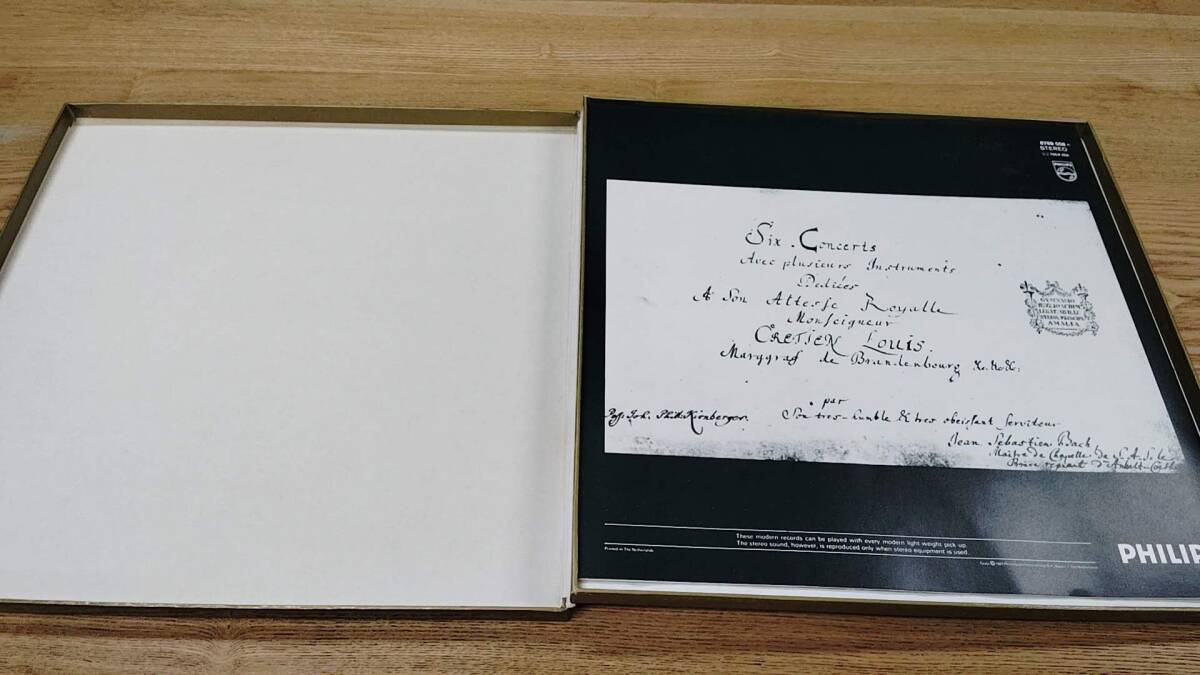 STEREO
PHILIPS
Six. Concerts
Avec plusieurs Instruments
Dediées
A Son Altesse Royalle
Monseigneur
CRETIEN Louis.
Marggraf de Brandenbourg &c.&c&c:
par
Son tres-humble & tres obeissant serviteur
Jean Sebastien Bach
Maitre de Chapelle de S.A.S. le
Prince regnant d'Anhalt-
Joh. Phil. Kirnberger.
AMALIA
These modern records can be played with every modern light weight pick up.
The stereo sound, however, is reproduced only when stereo equipment is used.
Printed in The Netherlands
PHILIP